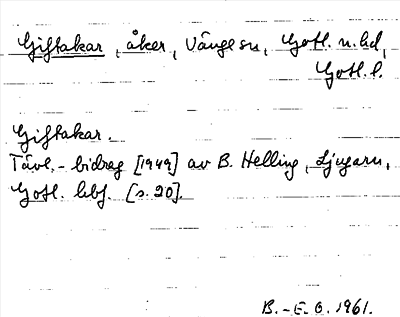 Giftakar, åker, Vänge sn, Gotl. n. hd,
Gotl. l.
Giftakar.
Tävl.-bidrag [1949] av B. Helling, Ljugarn,
Gotl. hbf. [s. 20].
B.-E. O. 1961.